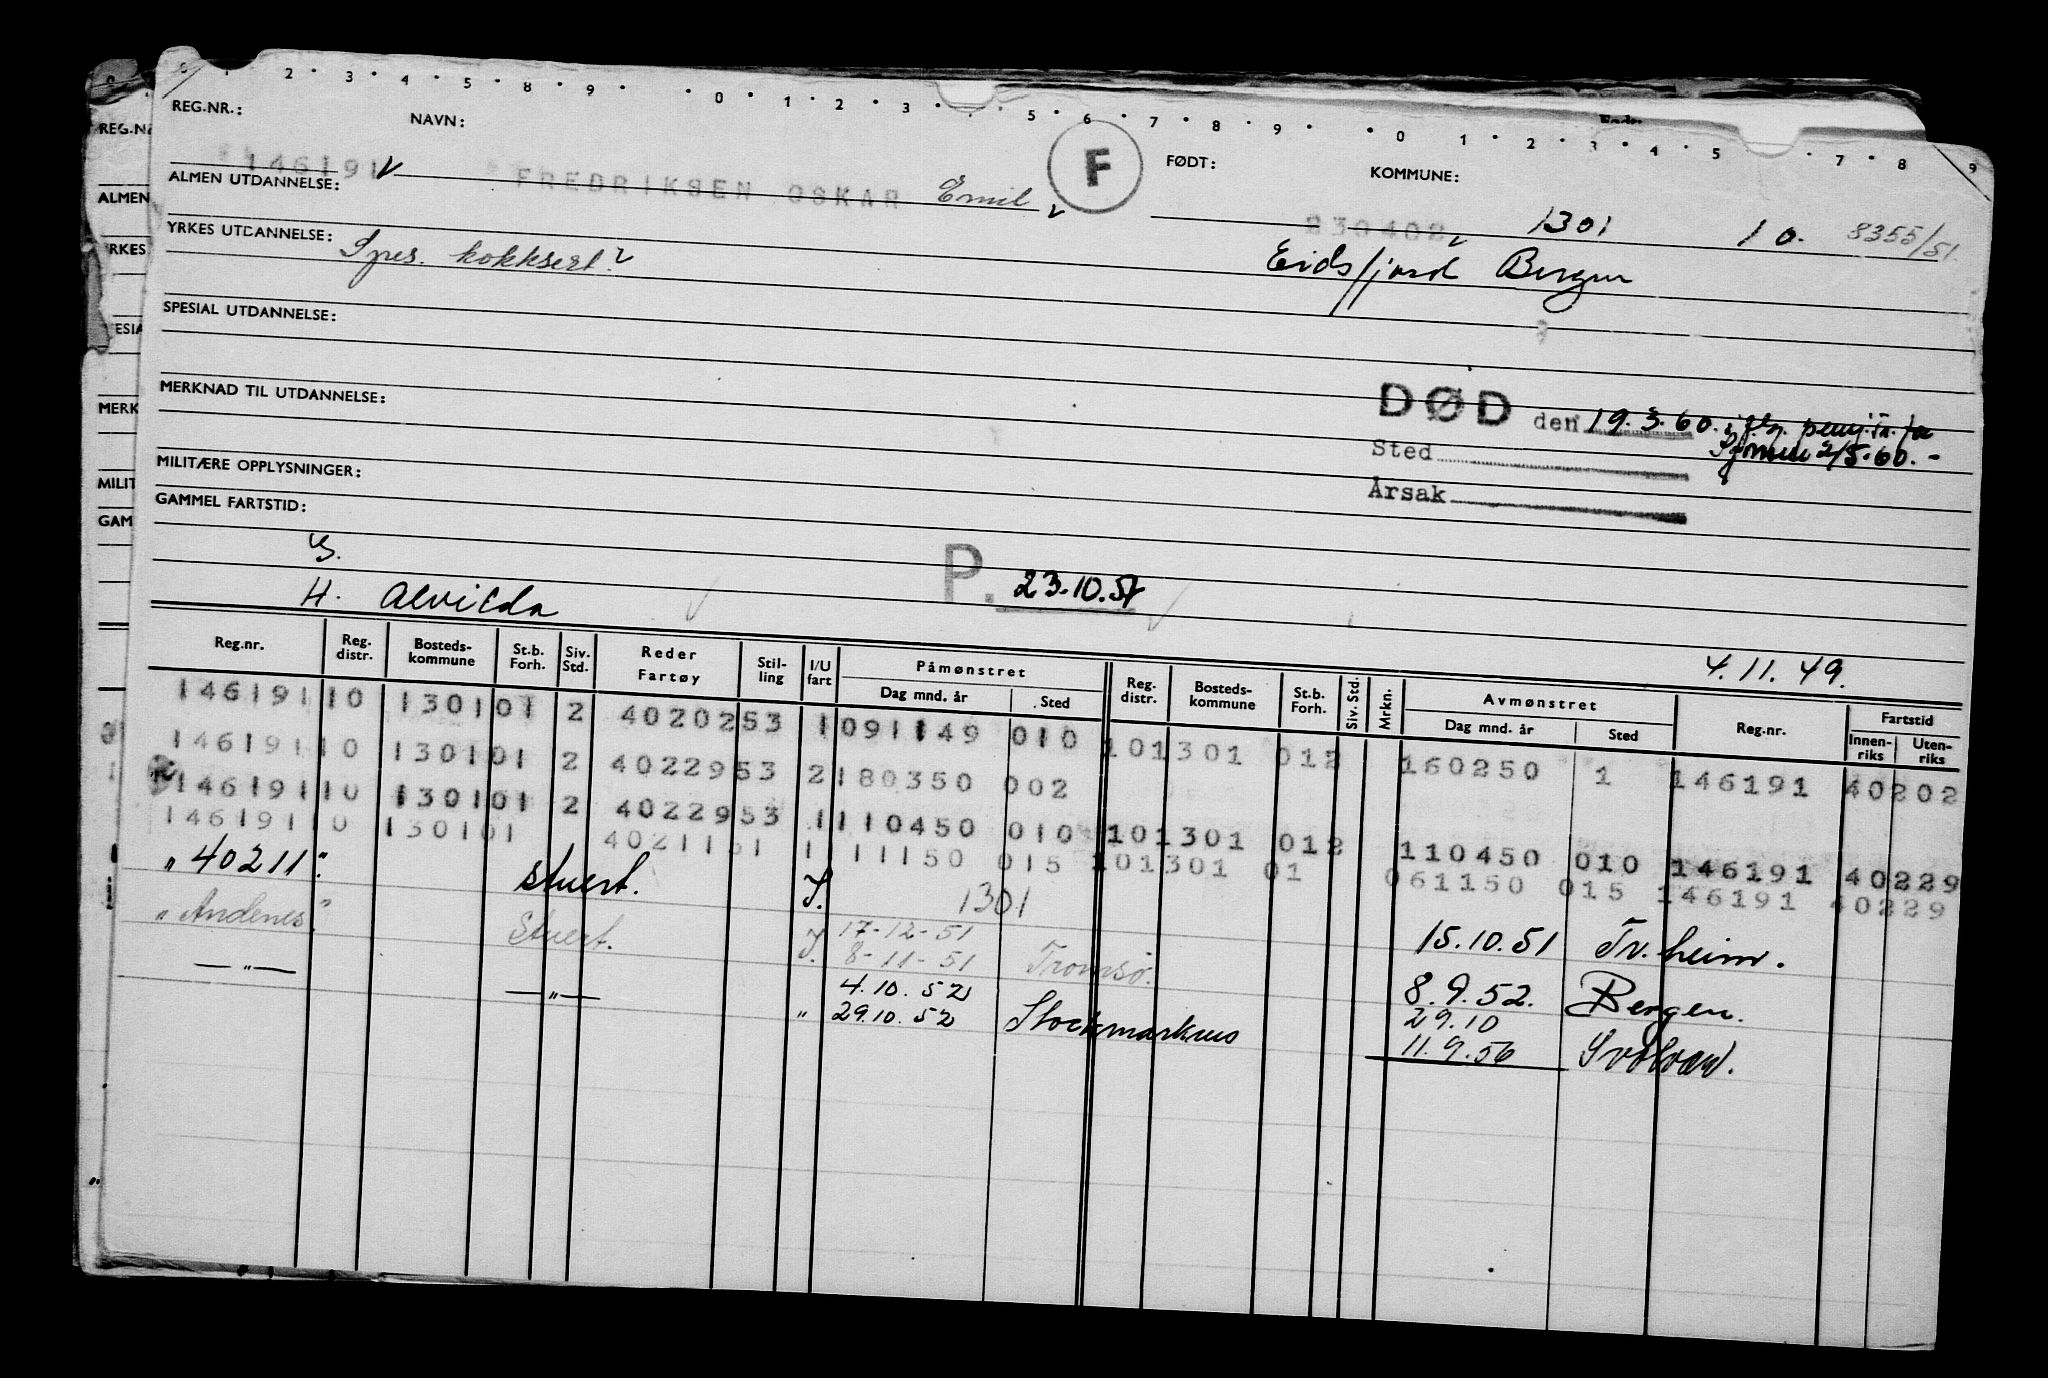 0 1 2 3 4 5 8 9 0 1 2 3 5 6 7 8 9 0 1 2 3 4 5 7 8 9
REG.NR.: NAVN: F FØDT: KOMMUNE:
146191 FREDRIKSEN OSKAR Emil 230402 1301 10. 8355/51
ALMEN UTDANNELSE:
YRKES UTDANNELSE: Spes. kokksert. Eidsfjord Bergen
SPESIAL UTDANNELSE:
MERKNAD TIL UTDANNELSE:
DØD den 19.3.60. iflg. for
Sted 2/5.60.-
MILITÆRE OPPLYSNINGER:
Årsak
GAMMEL FARTSTID:
G.
H. Alvilda P. 23.10.57
4.11.49.
Reg.nr. Reg. distr. Bosteds-kommune St.b. Forh. Siv. Std. Reder Fartøy Stil-ling I/U fart Påmønstret Dag mnd. år Sted Reg. distr. Bosteds-kommune St.b. Forh. Siv. Std. Mrkn. Avmønstret Dag mnd. år Sted Reg.nr. Fartstid Innen-riks Uten-riks
146191 10 1301 01 2 40202 53 1 091149 010 10 1301 012 160250 1 146191 40202
146191 10 1301 01 2 40229 53 2 180350 002
146191 10 1301 01 2 40229 53 1 110450 010 10 1301 012 110450 010 146191 40229
146191 10 1301 01 40211 51 1 11150 015 10 1301 01 061150 015 146191 40229
" 40211 " stuert. I. 1301 15.10.51 Tr.heim.
" Andenes " Stuert. I. 17-12-51
8-11-51 Tromsø. 8.9.52. Bergen.
— " — — " — 4.10.52 29.10
" 29.10.52 Stockmarknes 11.9.56 Svolvær.